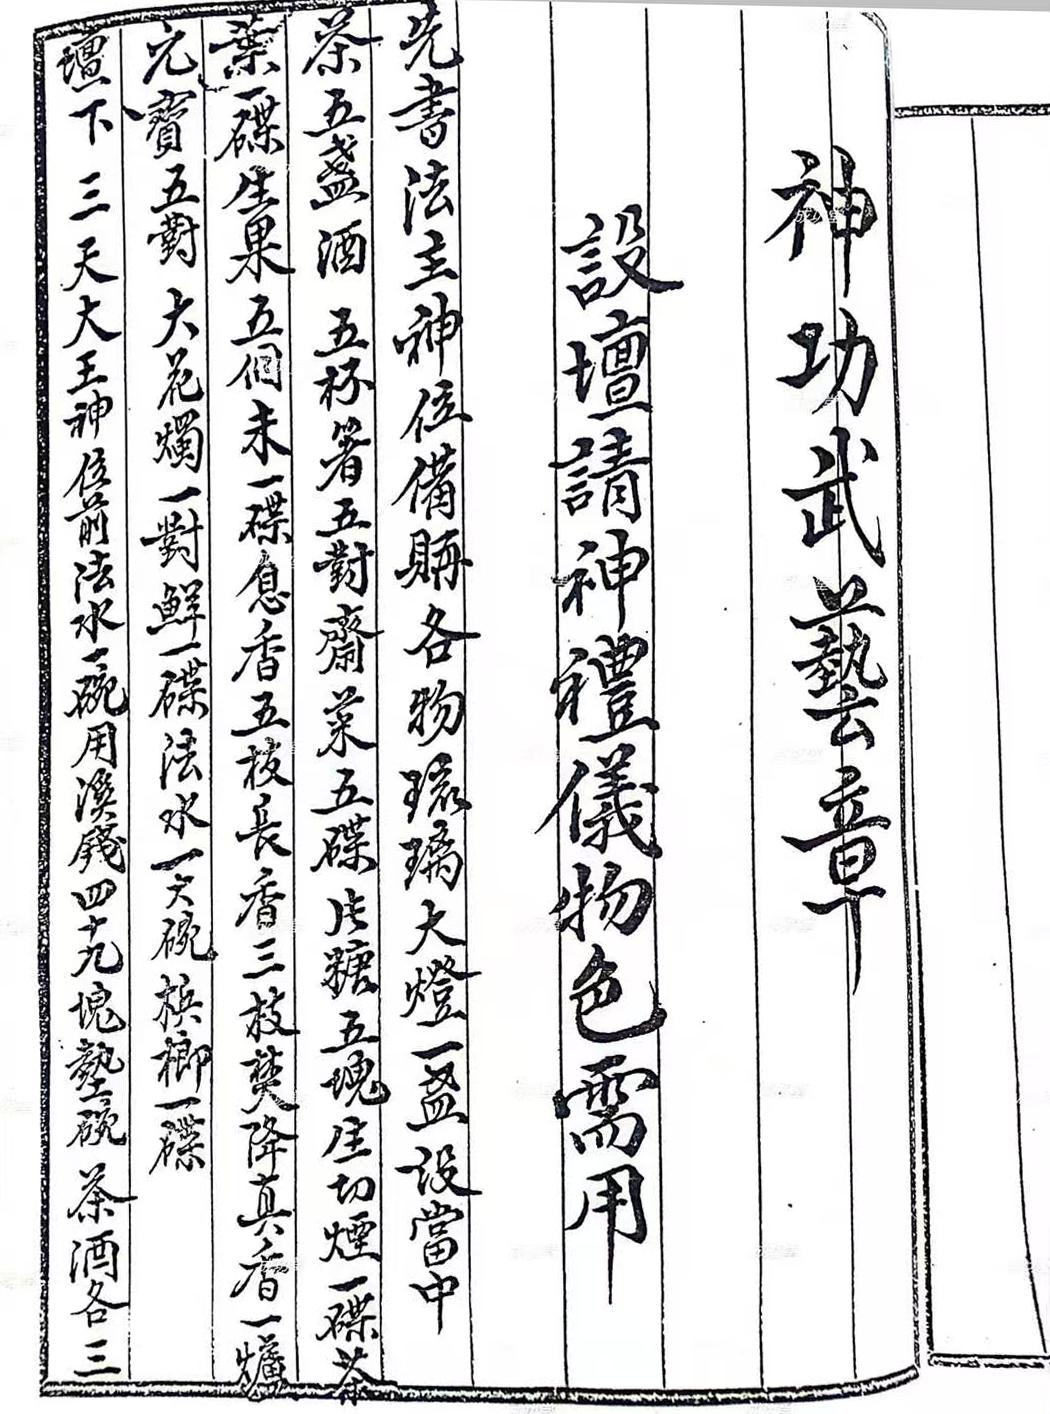 神功武藝章
設壇請神禮儀物色需用
先書法主神位備賻各物琉璃大燈一盞設當中
茶五盞酒五杯箸五對齋菜五碟片糖五塊生切煙一碟茶
葉一碟生果五個未一碟息香五枝長香三枝焚降真香一爐
元寶五對大花燭一對鮮一碟法水一大碗檳榔一碟
壇下三天大王神位前法水一碗用溪錢四十九塊墊碗茶酒各三